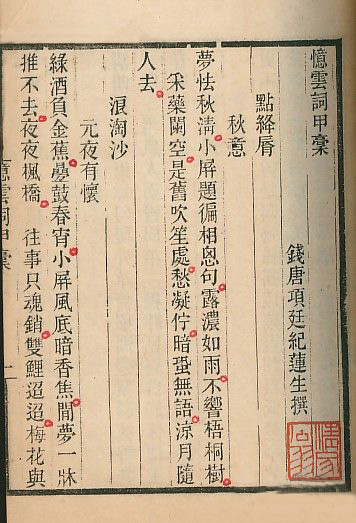 憶雲詞甲稾
錢唐項廷紀蓮生撰
點絳脣
秋意
夢怯秋淸小屏題徧相恖句露濃如雨不響梧桐樹
采藥闌空是舊吹笙處愁凝佇暗蛩無語涼月隨
人去
浪淘沙
元夜有懷
綠酒負金蕉疊鼓春宵小屏風底暗香焦閒夢一牀
推不去夜夜楓橋 往事只魂銷雙鯉迢迢梅花與
憶雲詞甲稾 一